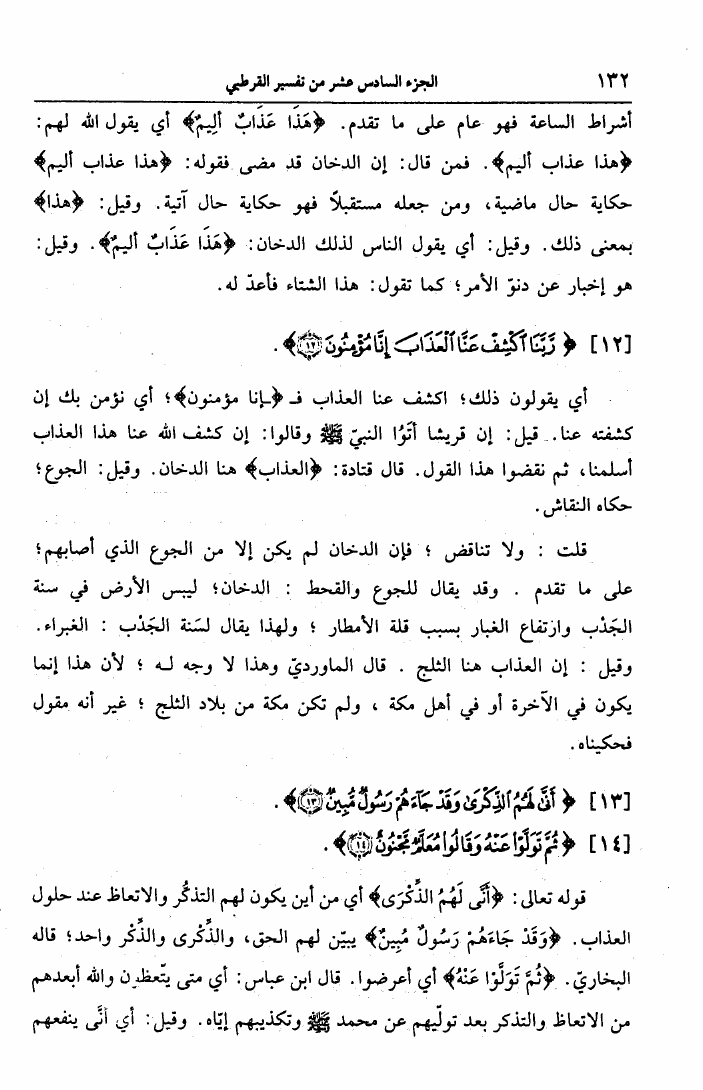 ١٣٢ الجزء السادس عشر من تفسير القرطبي
أشراط الساعة فهو عام على ما تقدم. ﴿هَذَا عَذَابٌ أَلِيمٌ﴾ أي يقول الله لهم:
﴿هذا عذاب أليم﴾. فمن قال: إن الدخان قد مضى فقوله: ﴿هذا عذاب أليم﴾
حكاية حال ماضية، ومن جعله مستقبلاً فهو حكاية حال آتية. وقيل: ﴿هذا﴾
بمعنى ذلك. وقيل: أي يقول الناس لذلك الدخان: ﴿هَذَا عَذَابٌ أليمٌ﴾. وقيل:
هو إخبار عن دنوّ الأمر؛ كما تقول: هذا الشتاء فأعدّ له.
[١٢] ﴿رَّبَّنَا ٱكْشِفْ عَنَّا ٱلْعَذَابَ إِنَّا مُؤْمِنُونَ ١٢﴾.
أي يقولون ذلك؛ اكشف عنا العذاب فـ ﴿ـإنا مؤمنون﴾؛ أي نؤمن بك إن
كشفته عنا. قيل: إن قريشا أتَوُا النبيّ ﷺ وقالوا: إن كشف الله عنا هذا العذاب
أسلمنا، ثم نقضوا هذا القول. قال قتادة: ﴿العذاب﴾ هنا الدخان. وقيل: الجوع؛
حكاه النقاش.
قلت : ولا تناقض ؛ فإن الدخان لم يكن إلا من الجوع الذي أصابهم؛
على ما تقدم . وقد يقال للجوع والقحط : الدخان؛ ليبس الأرض في سنة
الجَدْب وارتفاع الغبار بسبب قلة الأمطار ؛ ولهذا يقال لسَنة الجَدْب : الغبراء.
وقيل : إن العذاب هنا الثلج . قال الماورديّ وهذا لا وجه لـه ؛ لأن هذا إنما
يكون في الآخرة أو في أهل مكة ، ولم تكن مكة من بلاد الثلج ؛ غير أنه مقول
فحكيناه.
[١٣] ﴿أَنَّىٰ لَهُمُ ٱلذِّكْرَىٰ وَقَدْ جَآءَهُمْ رَسُولٌ مُّبِينٌ ١٣﴾.
[١٤] ﴿ثُمَّ تَوَلَّوْا۟ عَنْهُ وَقَالُوا۟ مُعَلَّمٌ مَّجْنُونٌ ١٤﴾.
قوله تعالى: ﴿أَنَّى لَهُمُ الذِّكْرَى﴾ أي من أين يكون لهم التذكُّر والاتعاظ عند حلول
العذاب. ﴿وَقَدْ جَاءَهُمْ رَسُولٌ مُبِينٌ﴾ يبيّن لهم الحق، والذِّكرى والذِّكر واحد؛ قاله
البخاريّ. ﴿ثُمَّ تَوَلَّوْا عَنْهُ﴾ أي أعرضوا. قال ابن عباس: أي متى يتّعظون والله أبعدهم
من الاتعاظ والتذكر بعد تولّيهم عن محمد ﷺ وتكذيبهم إيّاه. وقيل: أي أنَّى ينفعهم